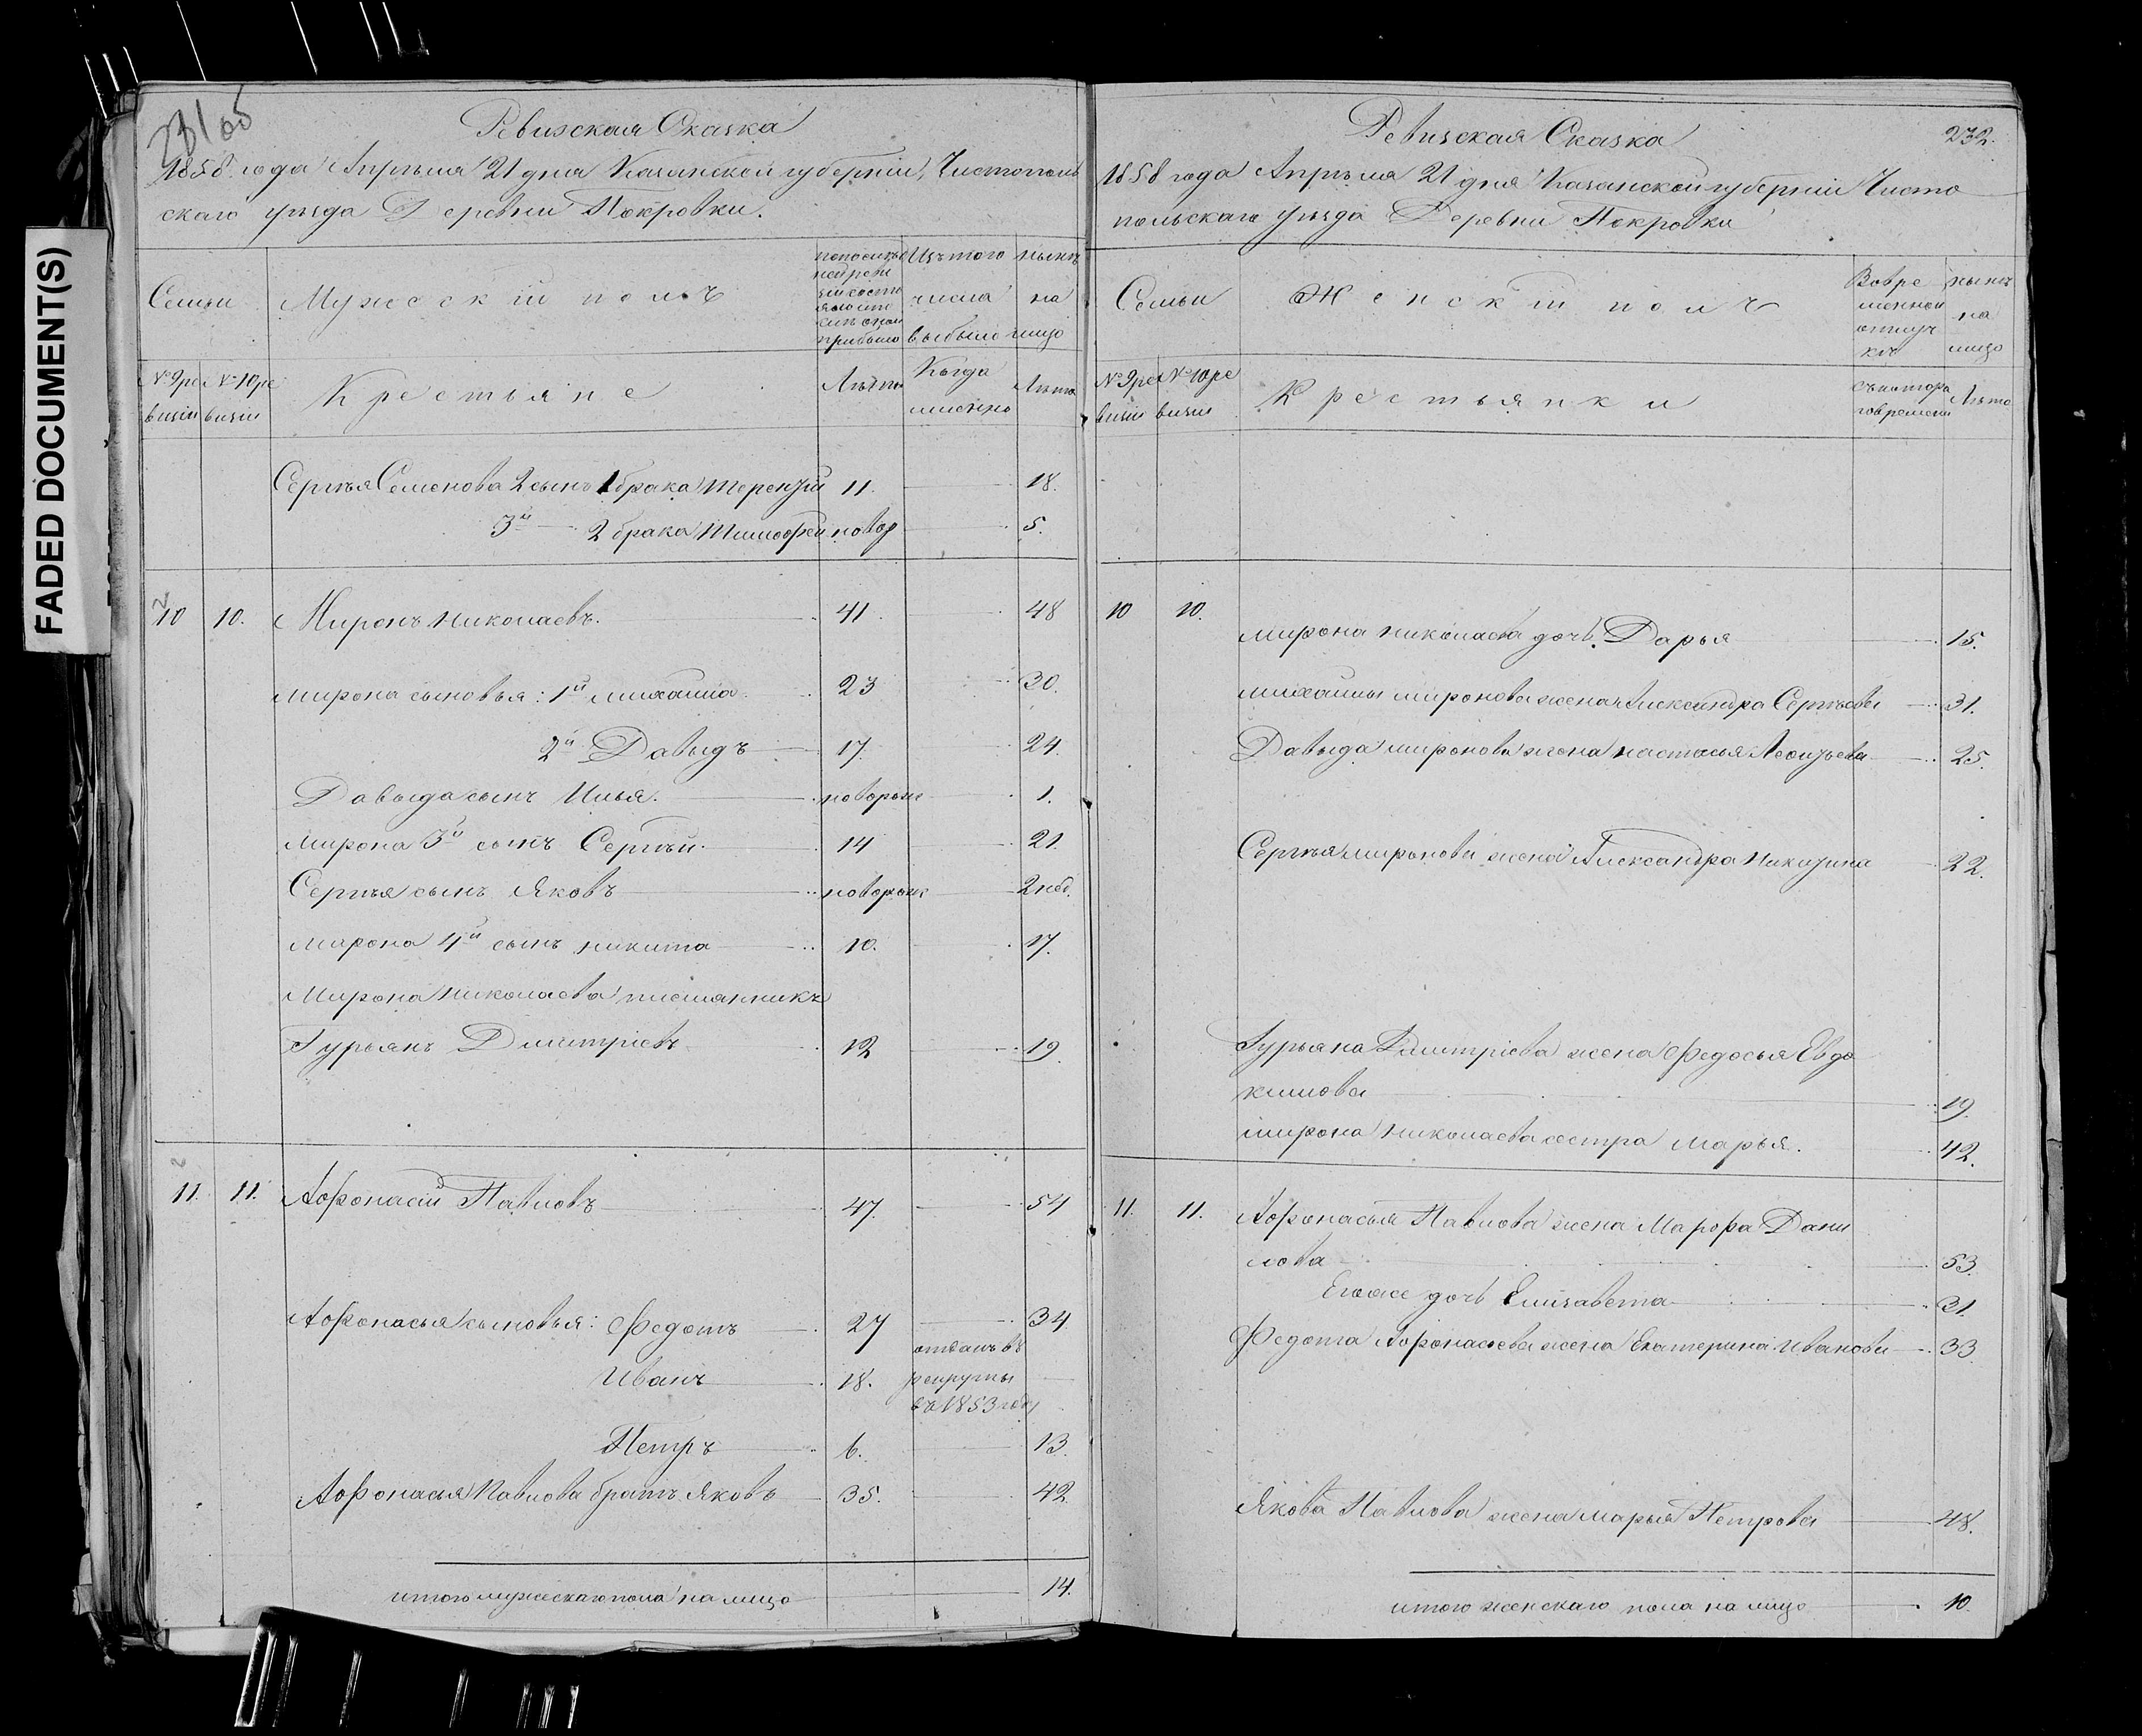 FADED DOCUMENT(S)
Ревизская Сказка
1858 года Апрѣля 21 дня Казанской губерніи, Чистополь
скаго уѣзда Деревни Покровки.
Семьи
Мужескій полъ
Изъ того числа выбыло
нынѣ на лицо
№ 9 ре
визіи
№ 10 ре
визіи
Крестьяне
Лѣты
Когда
именно
Лѣта
Сергѣя Семенова 2 сынъ 1 брака Терентій 11. 18.
3й 2 брака Тимофей новор 5.
10 10. Миронъ Николаевъ. 41. 48
Мирона сыновья: 1й Михаила 23 30.
2й Давыдъ 17. 24.
Давыда сынъ Илья. новорож 1.
Мирона 3й сынъ Сергѣй. 14 21.
Сергѣя сынъ Яковъ новорож 2 нед.
Мирона 4й сынъ Никита 10. 17.
Мирона Николаева племянникъ
Гурьянъ Дмитріевъ 12 19.
11. 11. Афонасій Павловъ 47. 54
Афонасья сыновья: Федотъ 27 34
Иванъ 18. отданъ въ
рекруты
въ 1853 году
Петръ 6. 13.
Афонасья Павлова братъ Яковъ 35. 42
итого мужескаго пола на лицо 14.
Ревизская Сказка 232.
1858 года Апрѣля 21 дня Казанской губерніи Чисто
польскаго уѣзда Деревни Покровки
Семьи
Женскій полъ
Во вре
менной
отлуч
кѣ
нынѣ
на
лицо
№ 9 ре
визіи
№ 10 ре
визіи
Крестьянки
съ котора
го времени
Лѣта
10 10. Мирона Николаева дочь Дарья 15.
Михайлы Миронова жена Александра Сергѣева 31.
Давыда Миронова жена Настасья Леонтьева 25.
Сергѣя Миронова жена Александра Никитина 22.
Гурьяна Дмитріева жена Федосья Евдо
кимова 19.
Мирона Николаева сестра Марья. 42.
11. 11. Афонасья Павлова жена Марфа Дани
лова 53.
Его же дочь Елизавета 31.
Федота Афонасьева жена Екатерина Иванова 33
Якова Павлова жена Марья Петрова 48.
итого женскаго пола на лицо 10.